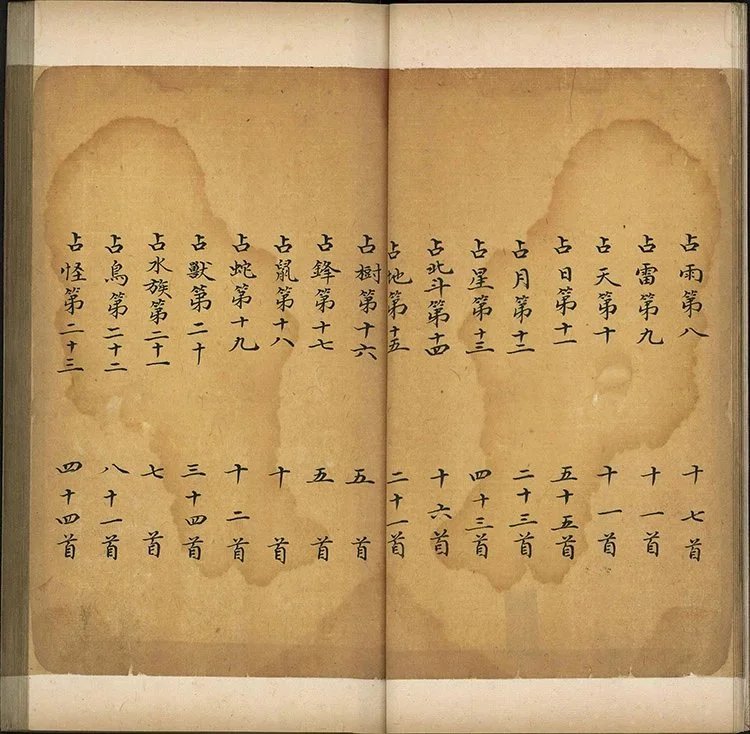 占雨第八 十七首
占雷第九 十一首
占天第十 十一首
占日第十一 五十五首
占月第十二 二十三首
占星第十三 四十三首
占北斗第十四 十六首
占地第十五 二十一首
占樹第十六 五首
占鋒第十七 五首
占鼠第十八 十首
占蛇第十九 十二首
占獸第二十 三十四首
占水族第二十一 七首
占鳥第二十二 八十一首
占怪第二十三 四十四首